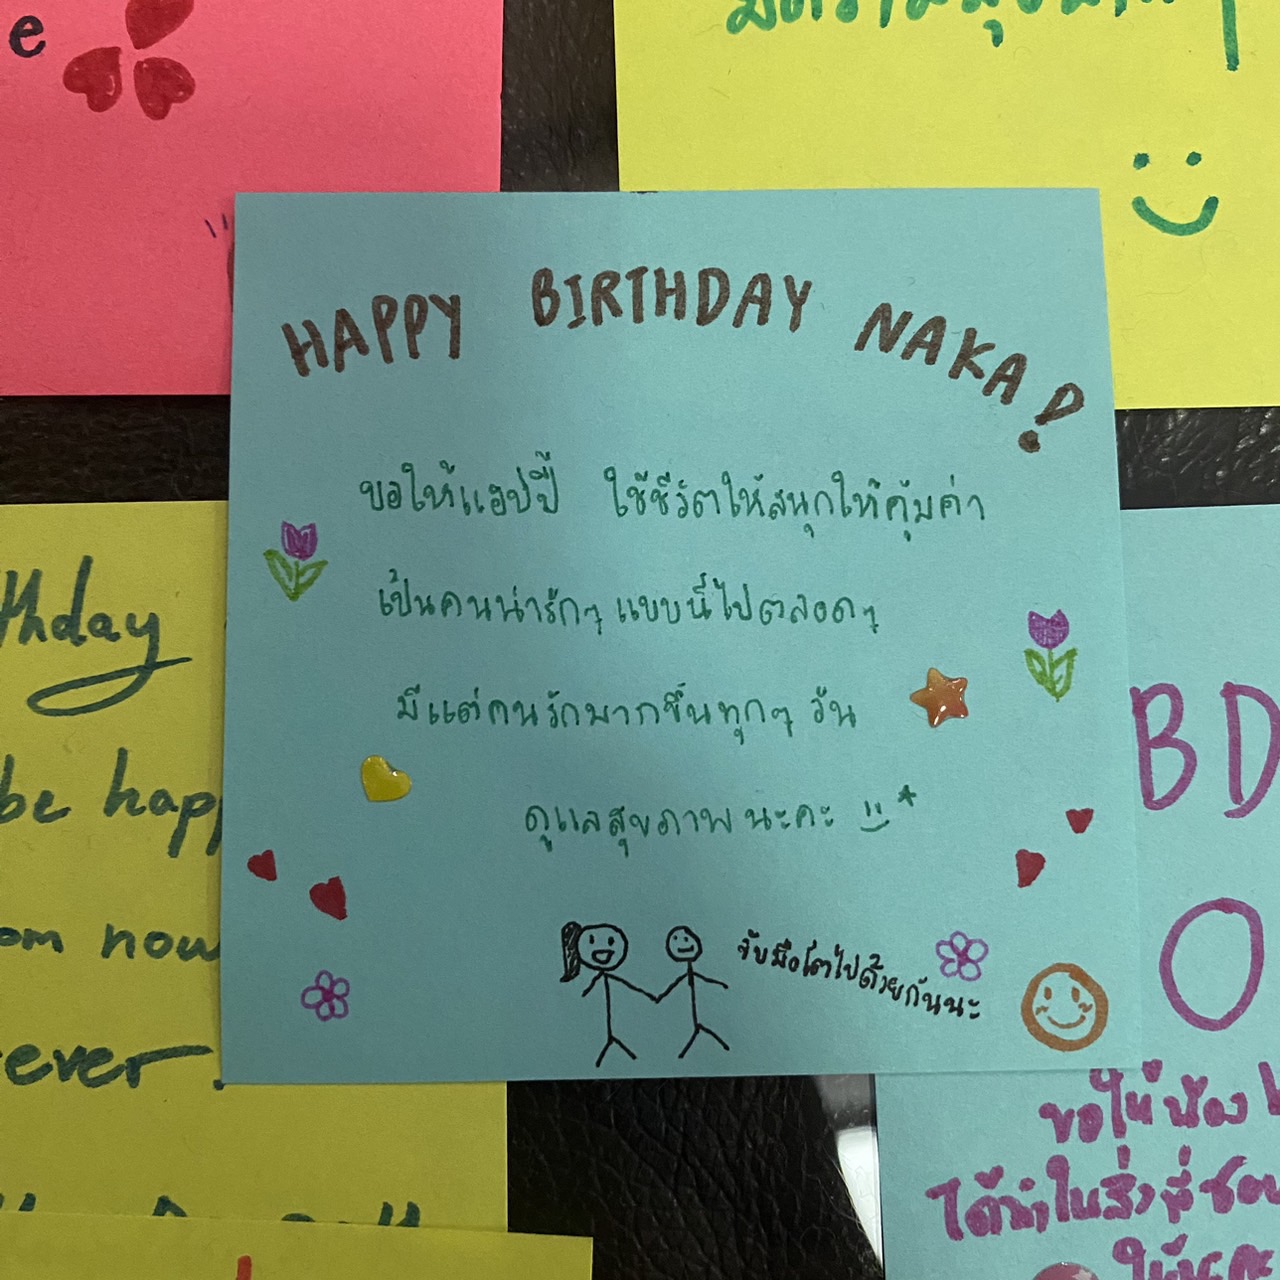 e
HAPPY BIRTHDAY NAKA!
ขอให้แฮปปี้ ใช้ชีวิตให้สนุกให้คุ้มค่า
เป็นคนน่ารักๆ แบบนี้ไปตลอดๆ
มีแต่คนรักมากขึ้นทุกๆ วัน
ดูแลสุขภาพนะคะ
จับมือโตไปด้วยกันนะ
thday
be happ
om now
ever.
BD
O
ขอให้น้อง
ได้ทำในสิ่งที่ชอบ